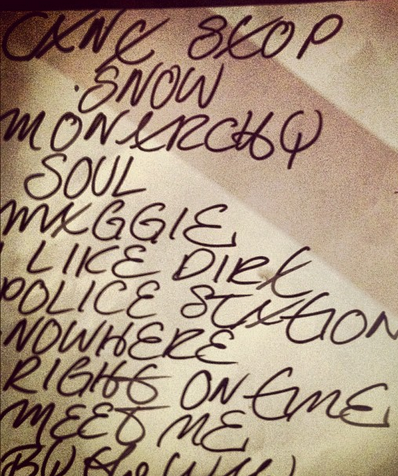 CANT STOP
SNOW
MONARCHY
SOUL
MAGGIE
I LIKE DIRT
POLICE STATION
NOWHERE
RIGHT ON TIME
MEET ME
BY the WAY